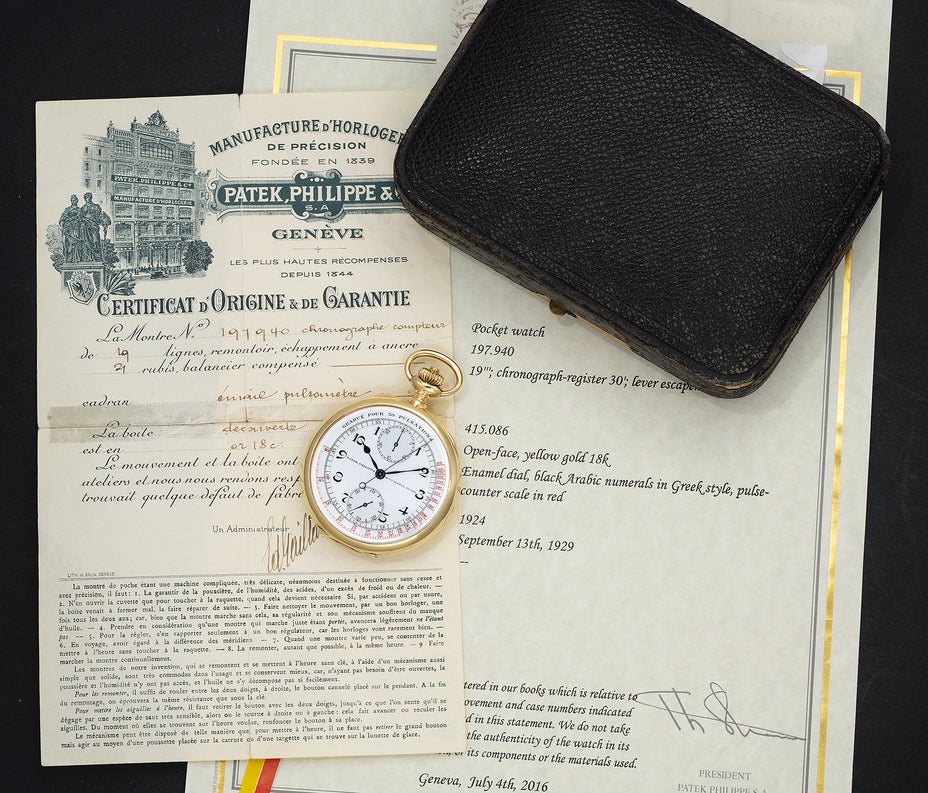 PATEK, PHILIPPE & Cº
MANUFACTURE D'HORLOGERIE
MANUFACTURE D'HORLOGER
DE PRÉCISION
FONDÉE EN 1839
PATEK, PHILIPPE &
S.A
GENÈVE
LES PLUS HAUTES RÉCOMPENSES
DEPUIS 1844
CERTIFICAT D'ORIGINE & DE GARANTIE
La Montre Nº 197940 chronographe compteur
de 19 lignes, remontoir, échappement à ancre
21 rubis, balancier compensé
cadran émail pulsomètre
La boîte découverte
est en or 18c.
Le mouvement et la boîte ont
ateliers et nous nous rendons resp
trouvait quelque défaut de fabri
Un Administrateur
LITH. H. BRUN, GENÈVE.
La montre de poche étant une machine compliquée, très délicate, néanmoins destinée à fonctionner sans cesse et
avec précision, il faut: 1. La garantir de la poussière, de l'humidité, des acides, d'un excès de froid ou de chaleur. —
2. N'en ouvrir la cuvette que pour toucher à la raquette, quand cela devient nécessaire Si, par accident ou par usure,
la boîte venait à fermer mal, la faire réparer de suite. — 3. Faire nettoyer le mouvement, par un bon horloger, une
fois tous les deux ans; car, bien que la montre marche sans cela, sa régularité et son mécanisme souffrent du manque
d'huile. — 4. Prendre en considération qu'une montre qui marche juste étant portée, avancera légèrement ne l'étant
pas — 5. Pour la régler, s'en rapporter seulement à un bon régulateur, car les horloges vont rarement bien. —
6. En voyage, avoir égard à la différence des méridiens — 7. Quand une montre varie peu, se contenter de la
mettre à l'heure sans toucher à la raquette. — 8. La remonter, autant que possible, à la même heure. — 9 Faire
marcher la montre continuellement.
Les montres de notre invention, qui se remontent et se mettent à l'heure sans clé, à l'aide d'un mécanisme aussi
simple que solide, sont très commodes dans l'usage et se conservent mieux, car, n'ayant pas besoin d'être ouvertes, la
poussière et l'humidité n'y ont pas accès, et l'huile ne s'y décompose pas si facilement.
Pour les remonter, il suffit de rouler entre les deux doigts, à droite, le bouton cannelé placé sur le pendant. A la fin
du remontage, on éprouvera la même résistance que sous la clé
Pour mettre les aiguilles à l'heure, il faut retirer le bouton avec les deux doigts, jusqu'à ce que l'on sente qu'il se
dégage par une espèce de saut très sensible, alors on le tourne à droite ou à gauche: cela fait avancer ou reculer les
aiguilles. Du moment où elles se trouvent sur l'heure voulue, renfoncer le bouton à sa place.
Le mécanisme peut être disposé de telle manière que, pour mettre à l'heure, il ne faut pas retirer le grand bouton
mais agir au moyen d'une poussette placée sur la carrure ou d'une targette qui se trouve sur la lunette de glace.
GRADUÉ POUR 30 PULSATIONS
Pocket watch
197.940
19'''; chronograph-register 30'; lever escape
415.086
Open-face, yellow gold 18k
Enamel dial, black Arabic numerals in Greek style, pulse-
counter scale in red
1924
September 13th, 1929
--
tered in our books which is relative to
ovement and case numbers indicated
d in this statement. We do not take
the authenticity of the watch in its
of its components or the materials used.
Geneva, July 4th, 2016
PRESIDENT
PATEK PHILIPPE S.A.